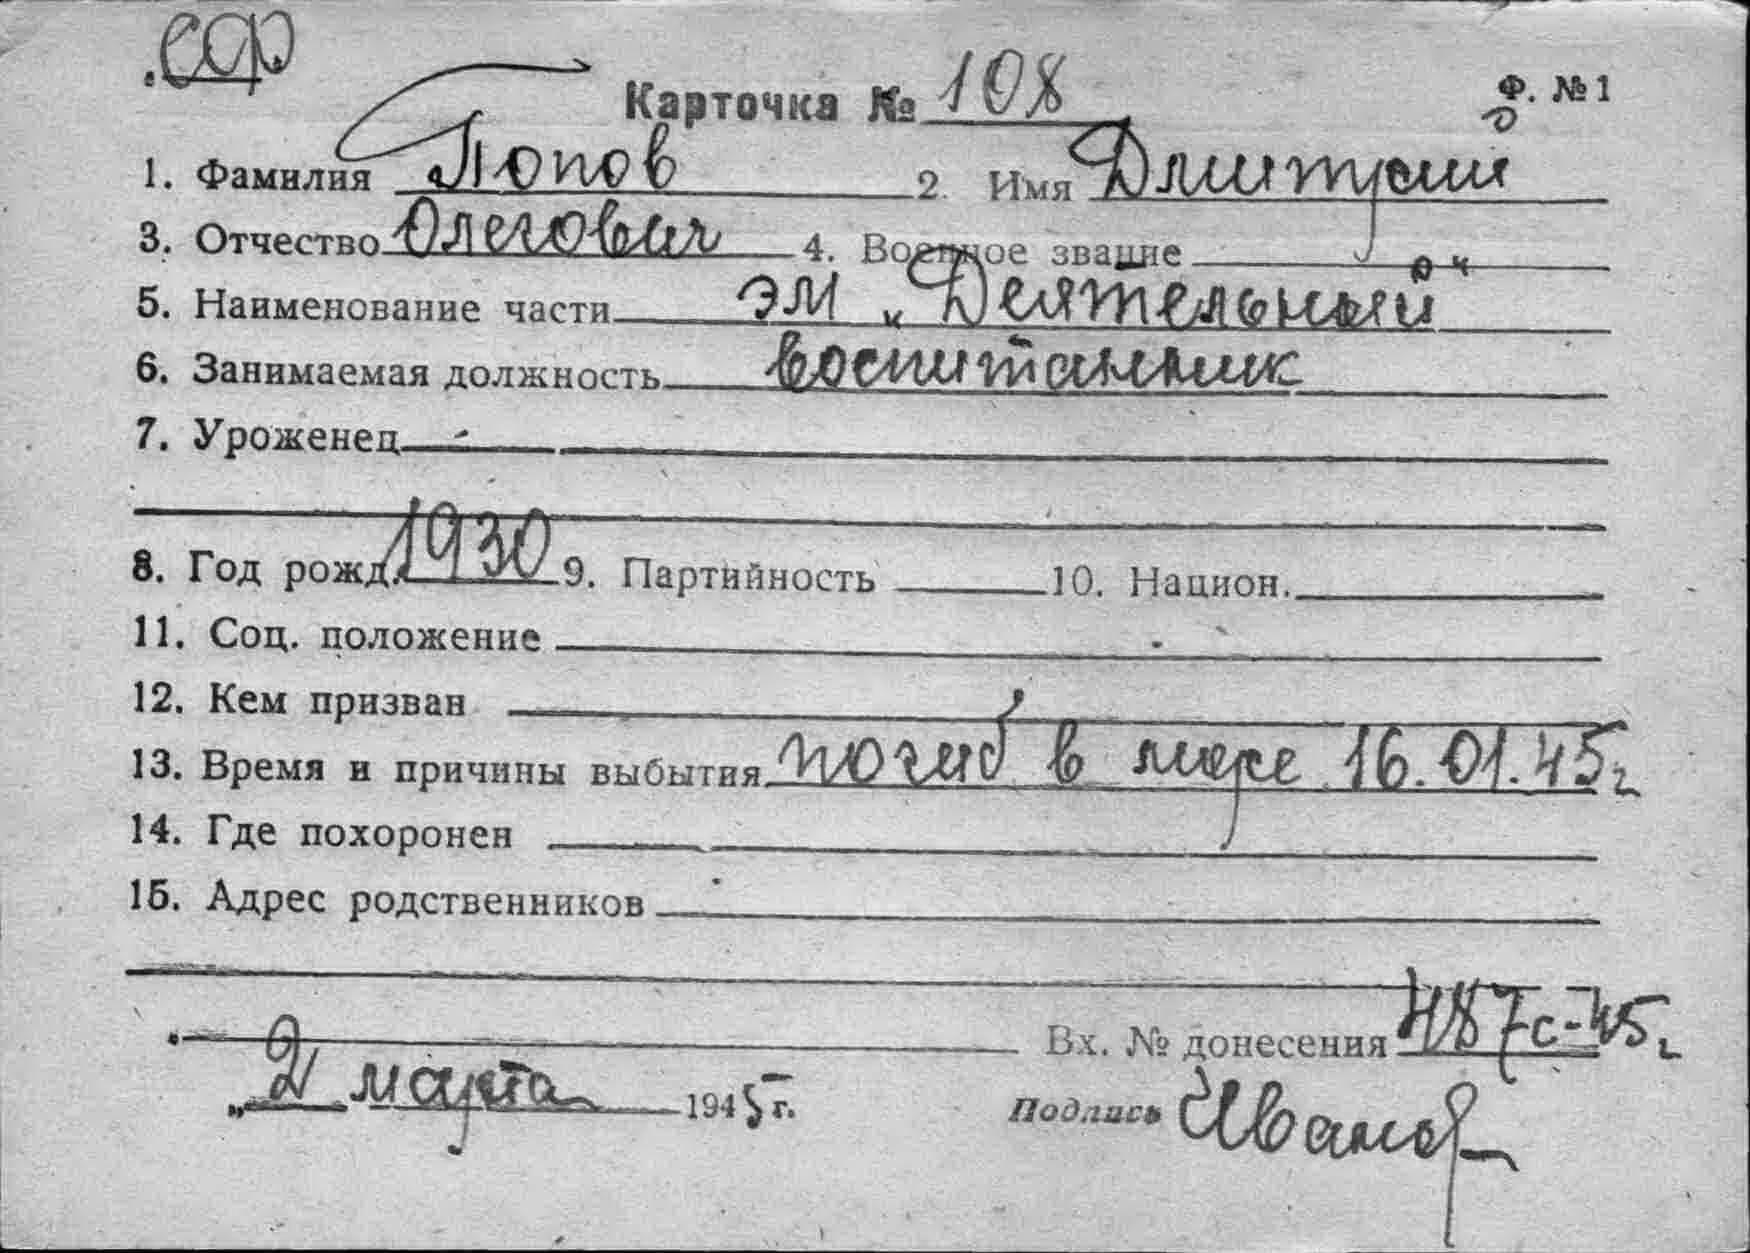 ССФ
Карточка № 108 Ф. №1
1. Фамилия Попов 2. Имя Дмитрий
3. Отчество Олегович 4. Военное звание
5. Наименование части ЭМ „Деятельный"
6. Занимаемая должность воспитанник
7. Уроженец -
8. Год рожд. 1930 9. Партийность 10. Национ.
11. Соц. положение
12. Кем призван
13. Время и причины выбытия погиб в море 16.01.45г
14. Где похоронен
15. Адрес родственников
Вх. № донесения 487с-45г
„2 марта 1945 г. Подпись Иванов